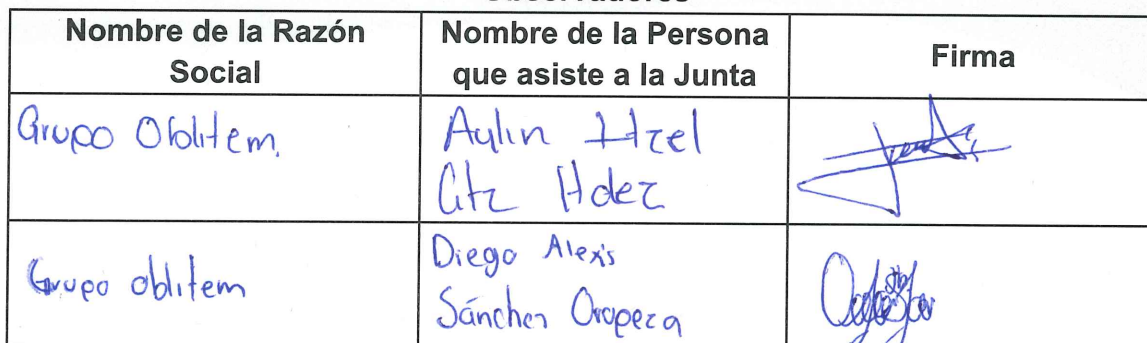 Nombre de la Razón Social
Nombre de la Persona que asiste a la Junta
Firma
Grupo Oblitem.
Aylin Itzel
Gtz Hdez
Grupo oblitem
Diego Alexis
Sánchez Oropeza